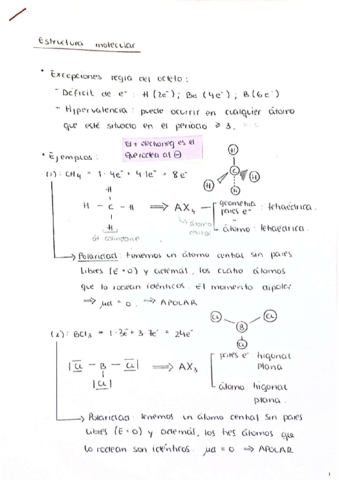 Estructura molecular
• Excepciones regla del octeto:
- Déficit de e⁻: H (2e⁻); Be (4e⁻); B (6e⁻)
- Hipervalencia: puede ocurrir en cualquier átomo
que esté situado en el periodo ≥ 3.
El + electroneg es el
que rodea al
• Ejemplos:
(1): CH₄ = 1·4e⁻ + 4·1e⁻ = 8e⁻
H
H - C - H ⟹ AX₄
H
geometría
pares e⁻: tetraédrica.
átomo: tetraédrica.
átomo
central
H
H C H
H
→ Polaridad: tenemos un átomo central sin pares
libres (E=0) y además, los cuatro átomos
que lo rodean idénticos. El momento dipolar
→ μd = 0. → APOLAR
(2): BCl₃ = 1·3e⁻ + 3·7e⁻ = 24e⁻
Cl Cl
B
Cl
|Cl - B - Cl| ⟹ AX₃
|Cl|
pares e⁻ trigonal
plana
átomo: trigonal
plana.
→ Polaridad: tenemos un átomo central sin pares
libres (E=0) y además, los tres átomos que
lo rodean son idénticos. μd = 0 → APOLAR